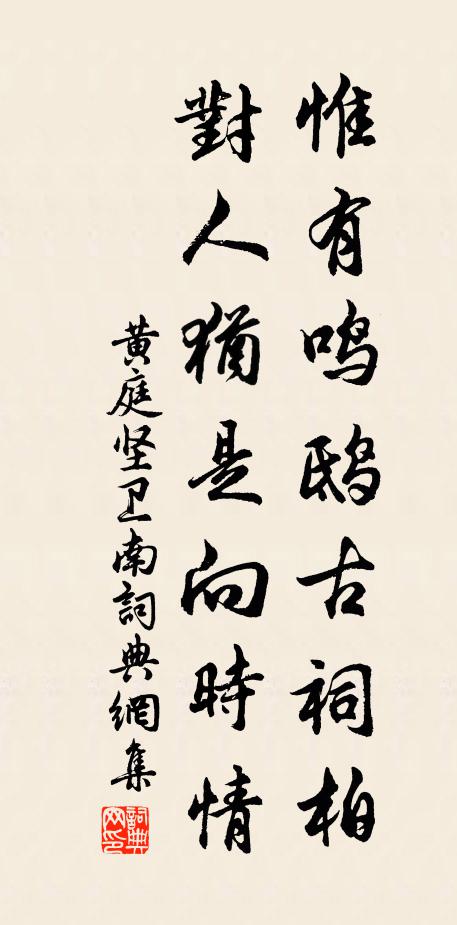 惟有鸣鸱古祠柏
對人猶是向時情
黄庭坚卫南詞典網集
詞典网印